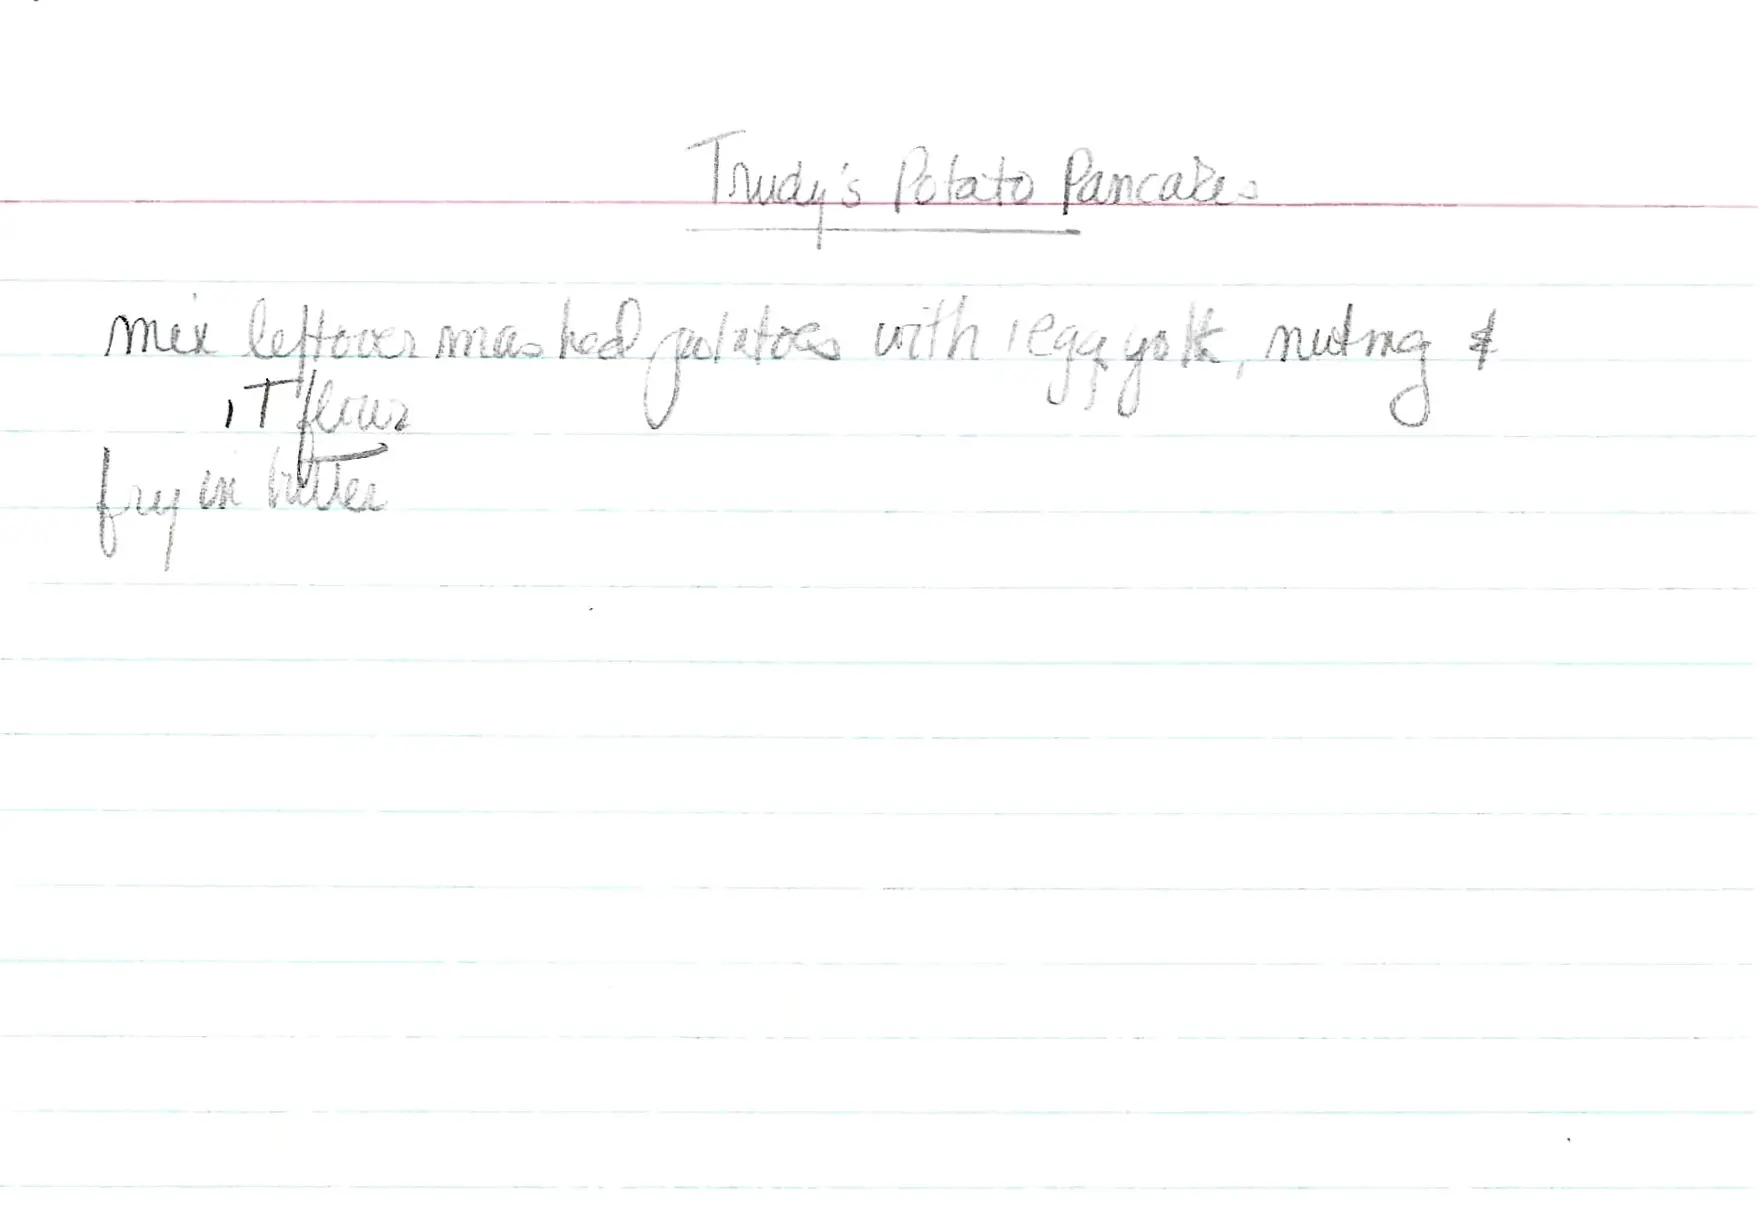 Trudy's Potato Pancakes
mix leftover mashed potatoes with 1 egg yolk, nutmg &
1 T flour
fry in butter